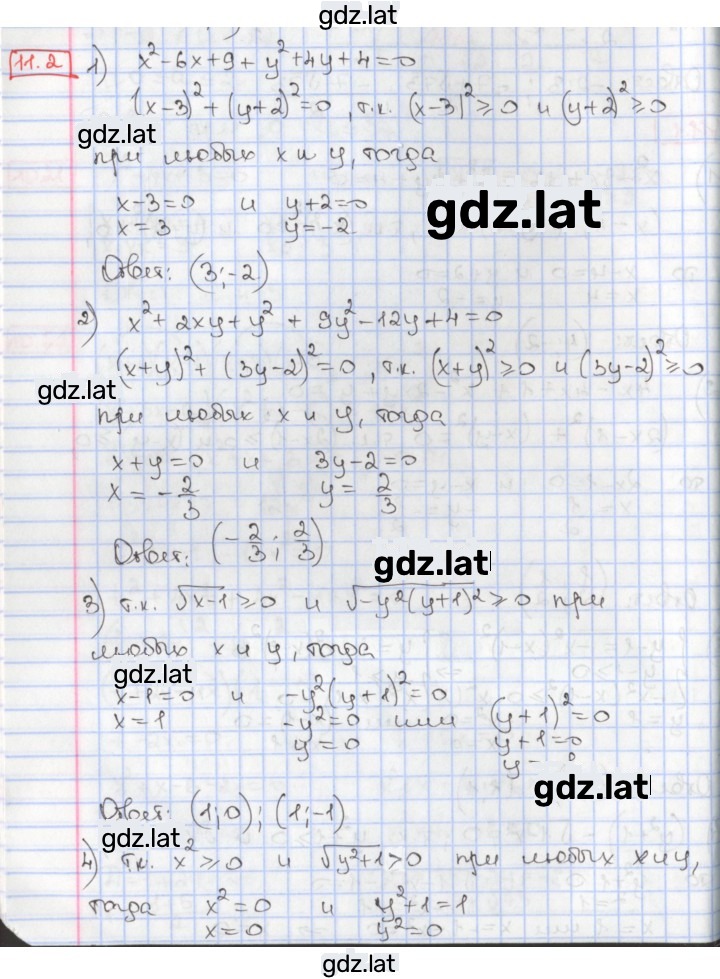 gdz.lat
11.2 1) x² - 6x + 9 + y² + 4y + 4 = 0
(x-3)² + (y+2)² = 0, т.к. (x-3)² ≥ 0 и (y+2)² ≥ 0
gdz.lat
при любых x и y, тогда
x-3=0 и y+2=0
gdz.lat
x=3 y=-2
Ответ: (3;-2)
2) x² + 2xy + y² + 9y² - 12y + 4 = 0
(x+y)² + (3y-2)² = 0, т.к. (x+y)² ≥ 0 и (3y-2)² ≥ 0
gdz.lat
при любых x и y, тогда
x+y=0 и 3y-2=0
x = -2/3 y = 2/3
Ответ: (-2/3; 2/3)
gdz.lat
3) т.к. √x-1 ≥ 0 и √-y²(y+1)² ≥ 0 при
любых x и y, тогда
gdz.lat
x-1=0 и -y²(y+1)²=0
x=1 -y²=0 или (y+1)²=0
y=0 y+1=0
y
gdz.lat
Ответ: (1;0); (1;-1)
gdz.lat
4) т.к. x² ≥ 0 и √y²+1 > 0 при любых x и y,
тогда x²=0 и y²+1=1
x=0 y²=0
gdz.lat